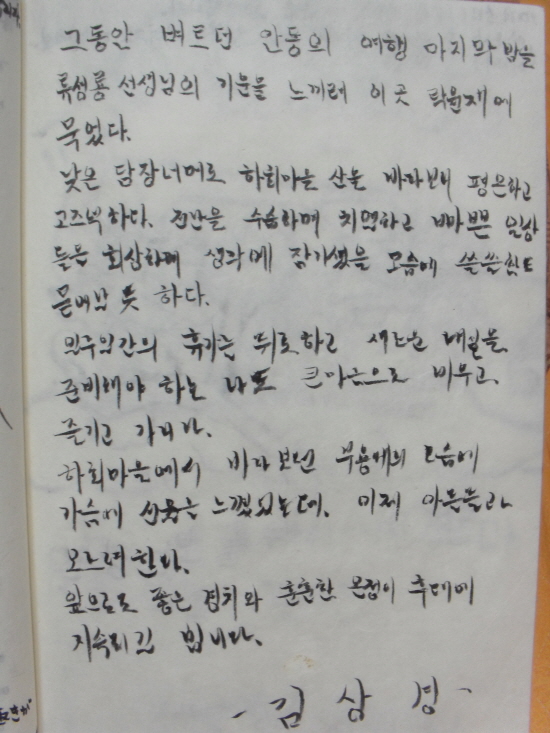 그동안 벼르던 안동의 여행 마지막 밤을
류성룡 선생님의 기운을 느끼러 이 곳 탁윤재에
묵었다.
낮은 담장너머로 하회마을 산을 바라보니 평온하고
고즈넉하다. 전란을 수습하며 치열하고 바쁜 일상
들을 회상하며 생각에 잠기셨을 모습에 쓸쓸함도
묻어난 듯 하다.
일주일간의 휴가를 뒤로하고 새로운 내일을
준비해야 하는 나도 큰마음으로 비우고,
즐기고 가리라.
하회마을에서 바라보던 부용대의 모습에
가슴에 는 느꼈었는데, 이제 아들들과
오르려한다.
앞으로도 좋은 경치와 훈훈한 온정이 후대에
지속되길 빕니다.
- 김 상 경 -